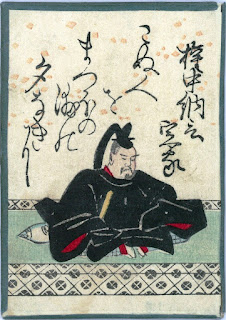 権中納言定家
こぬ人を
まつほの浦の
夕なきに